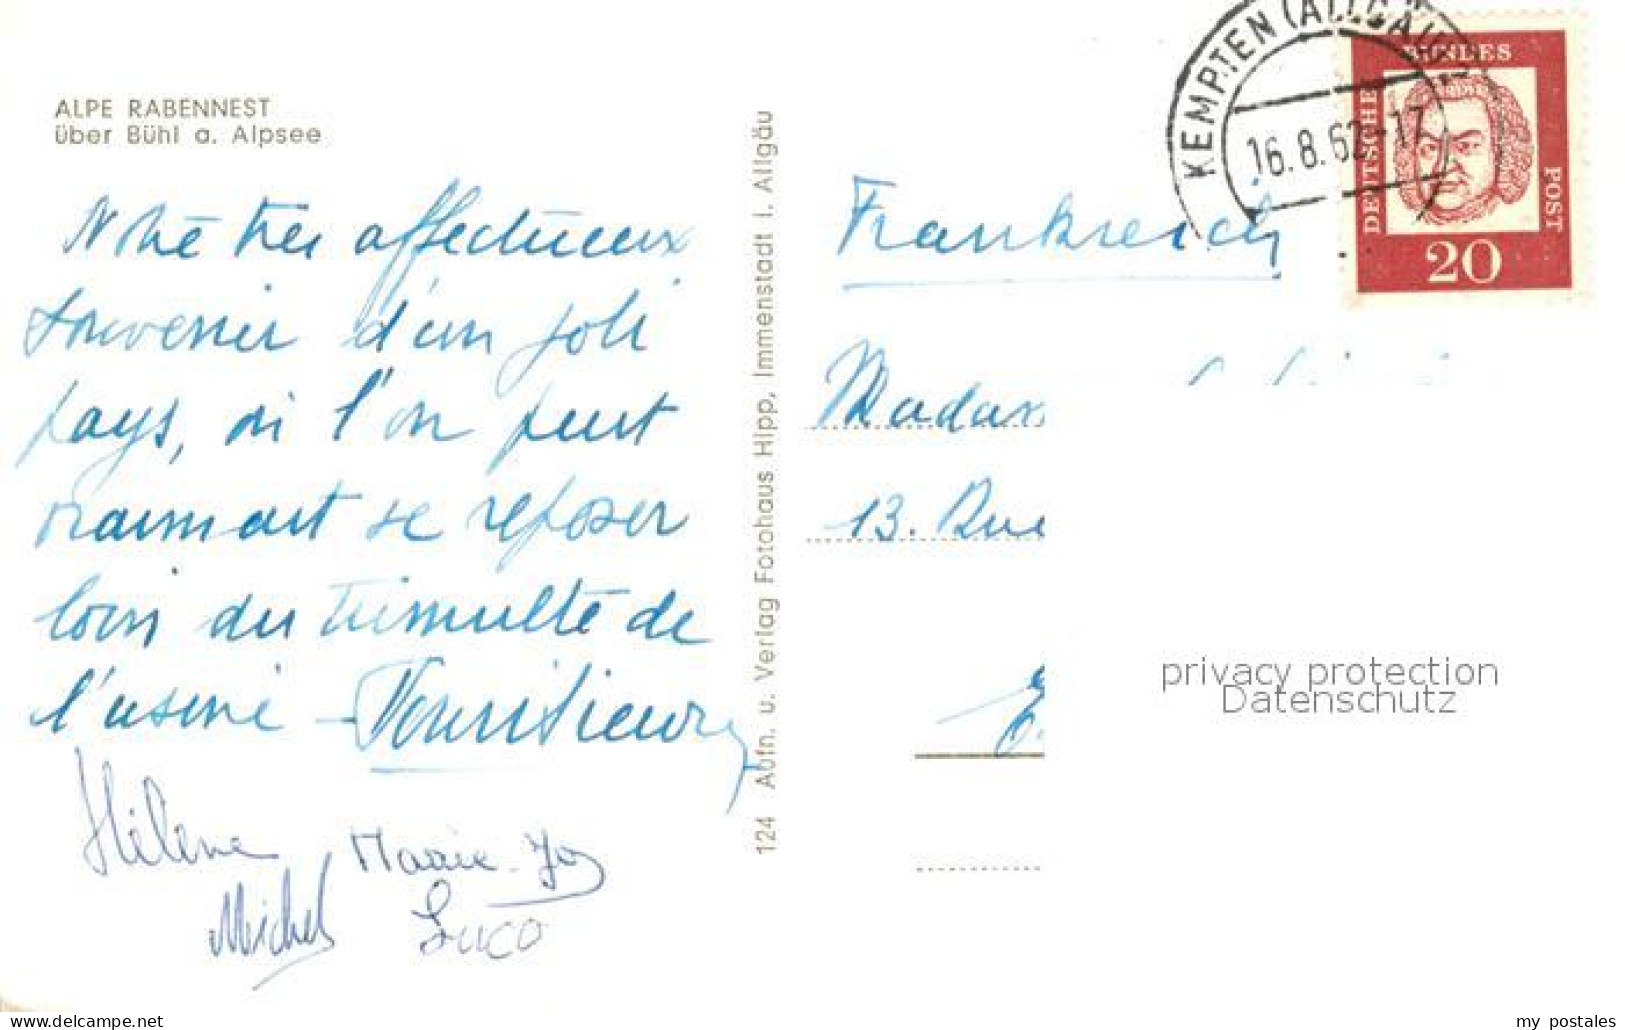 ALPE RABENNEST
über Bühl a. Alpsee
Notre très affectueux
souvenir d'un joli
pays, où l'on peut
vraiment se reposer
loin du tumulte de
l'usine –
Hélène Marie-Jo
Michel Luco
124 Aufn. u. Verlag Fotohaus Hipp, Immenstadt i. Allgäu
KEMPTEN (ALLGÄU)
16.8.62-17
BUNDES
DEUTSCHE
POST
20
Frankreich
Madam
13. Rue
E
privacy protection
Datenschutz
delcampe.net
my_postales